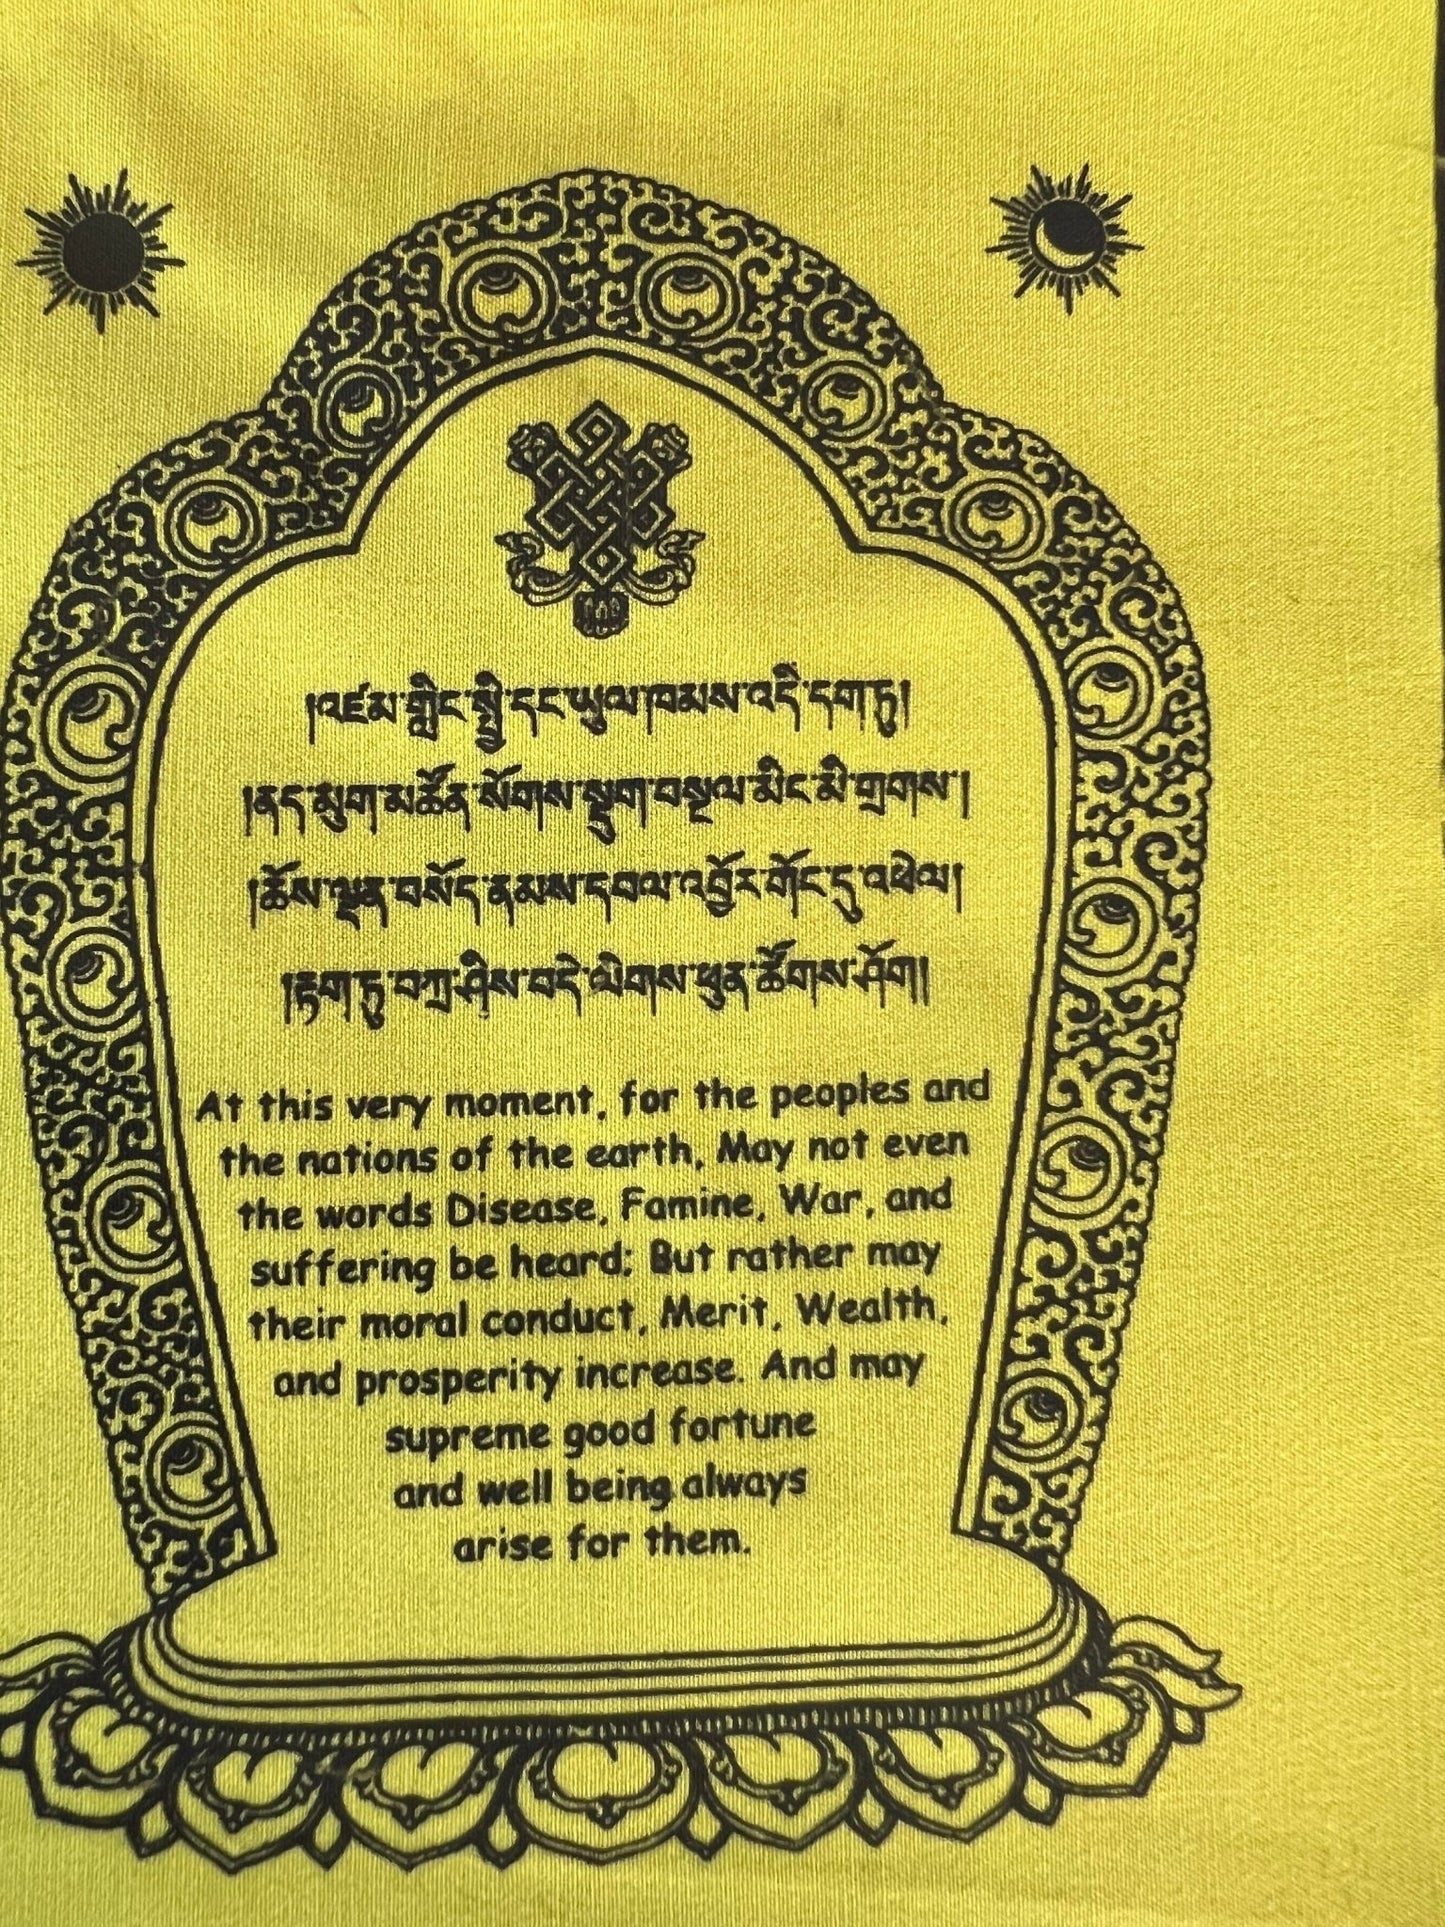 །འཛམ་གླིང་སྤྱི་དང་ཡུལ་ཁམས་འདི་དག་ཏུ།
།ནད་མུག་མཚོན་སོགས་སྡུག་བསྔལ་མིང་མི་གྲགས་།
།ཆོས་ལྡན་བསོད་ནམས་དཔལ་འབྱོར་གོང་དུ་འཕེལ།
།རྟག་ཏུ་བཀྲ་ཤིས་བདེ་ལེགས་ཕུན་ཚོགས་ཤོག།
At this very moment, for the peoples and
the nations of the earth, May not even
the words Disease, Famine, War, and
suffering be heard; But rather may
their moral conduct, Merit, Wealth,
and prosperity increase. And may
supreme good fortune
and well being always
arise for them.